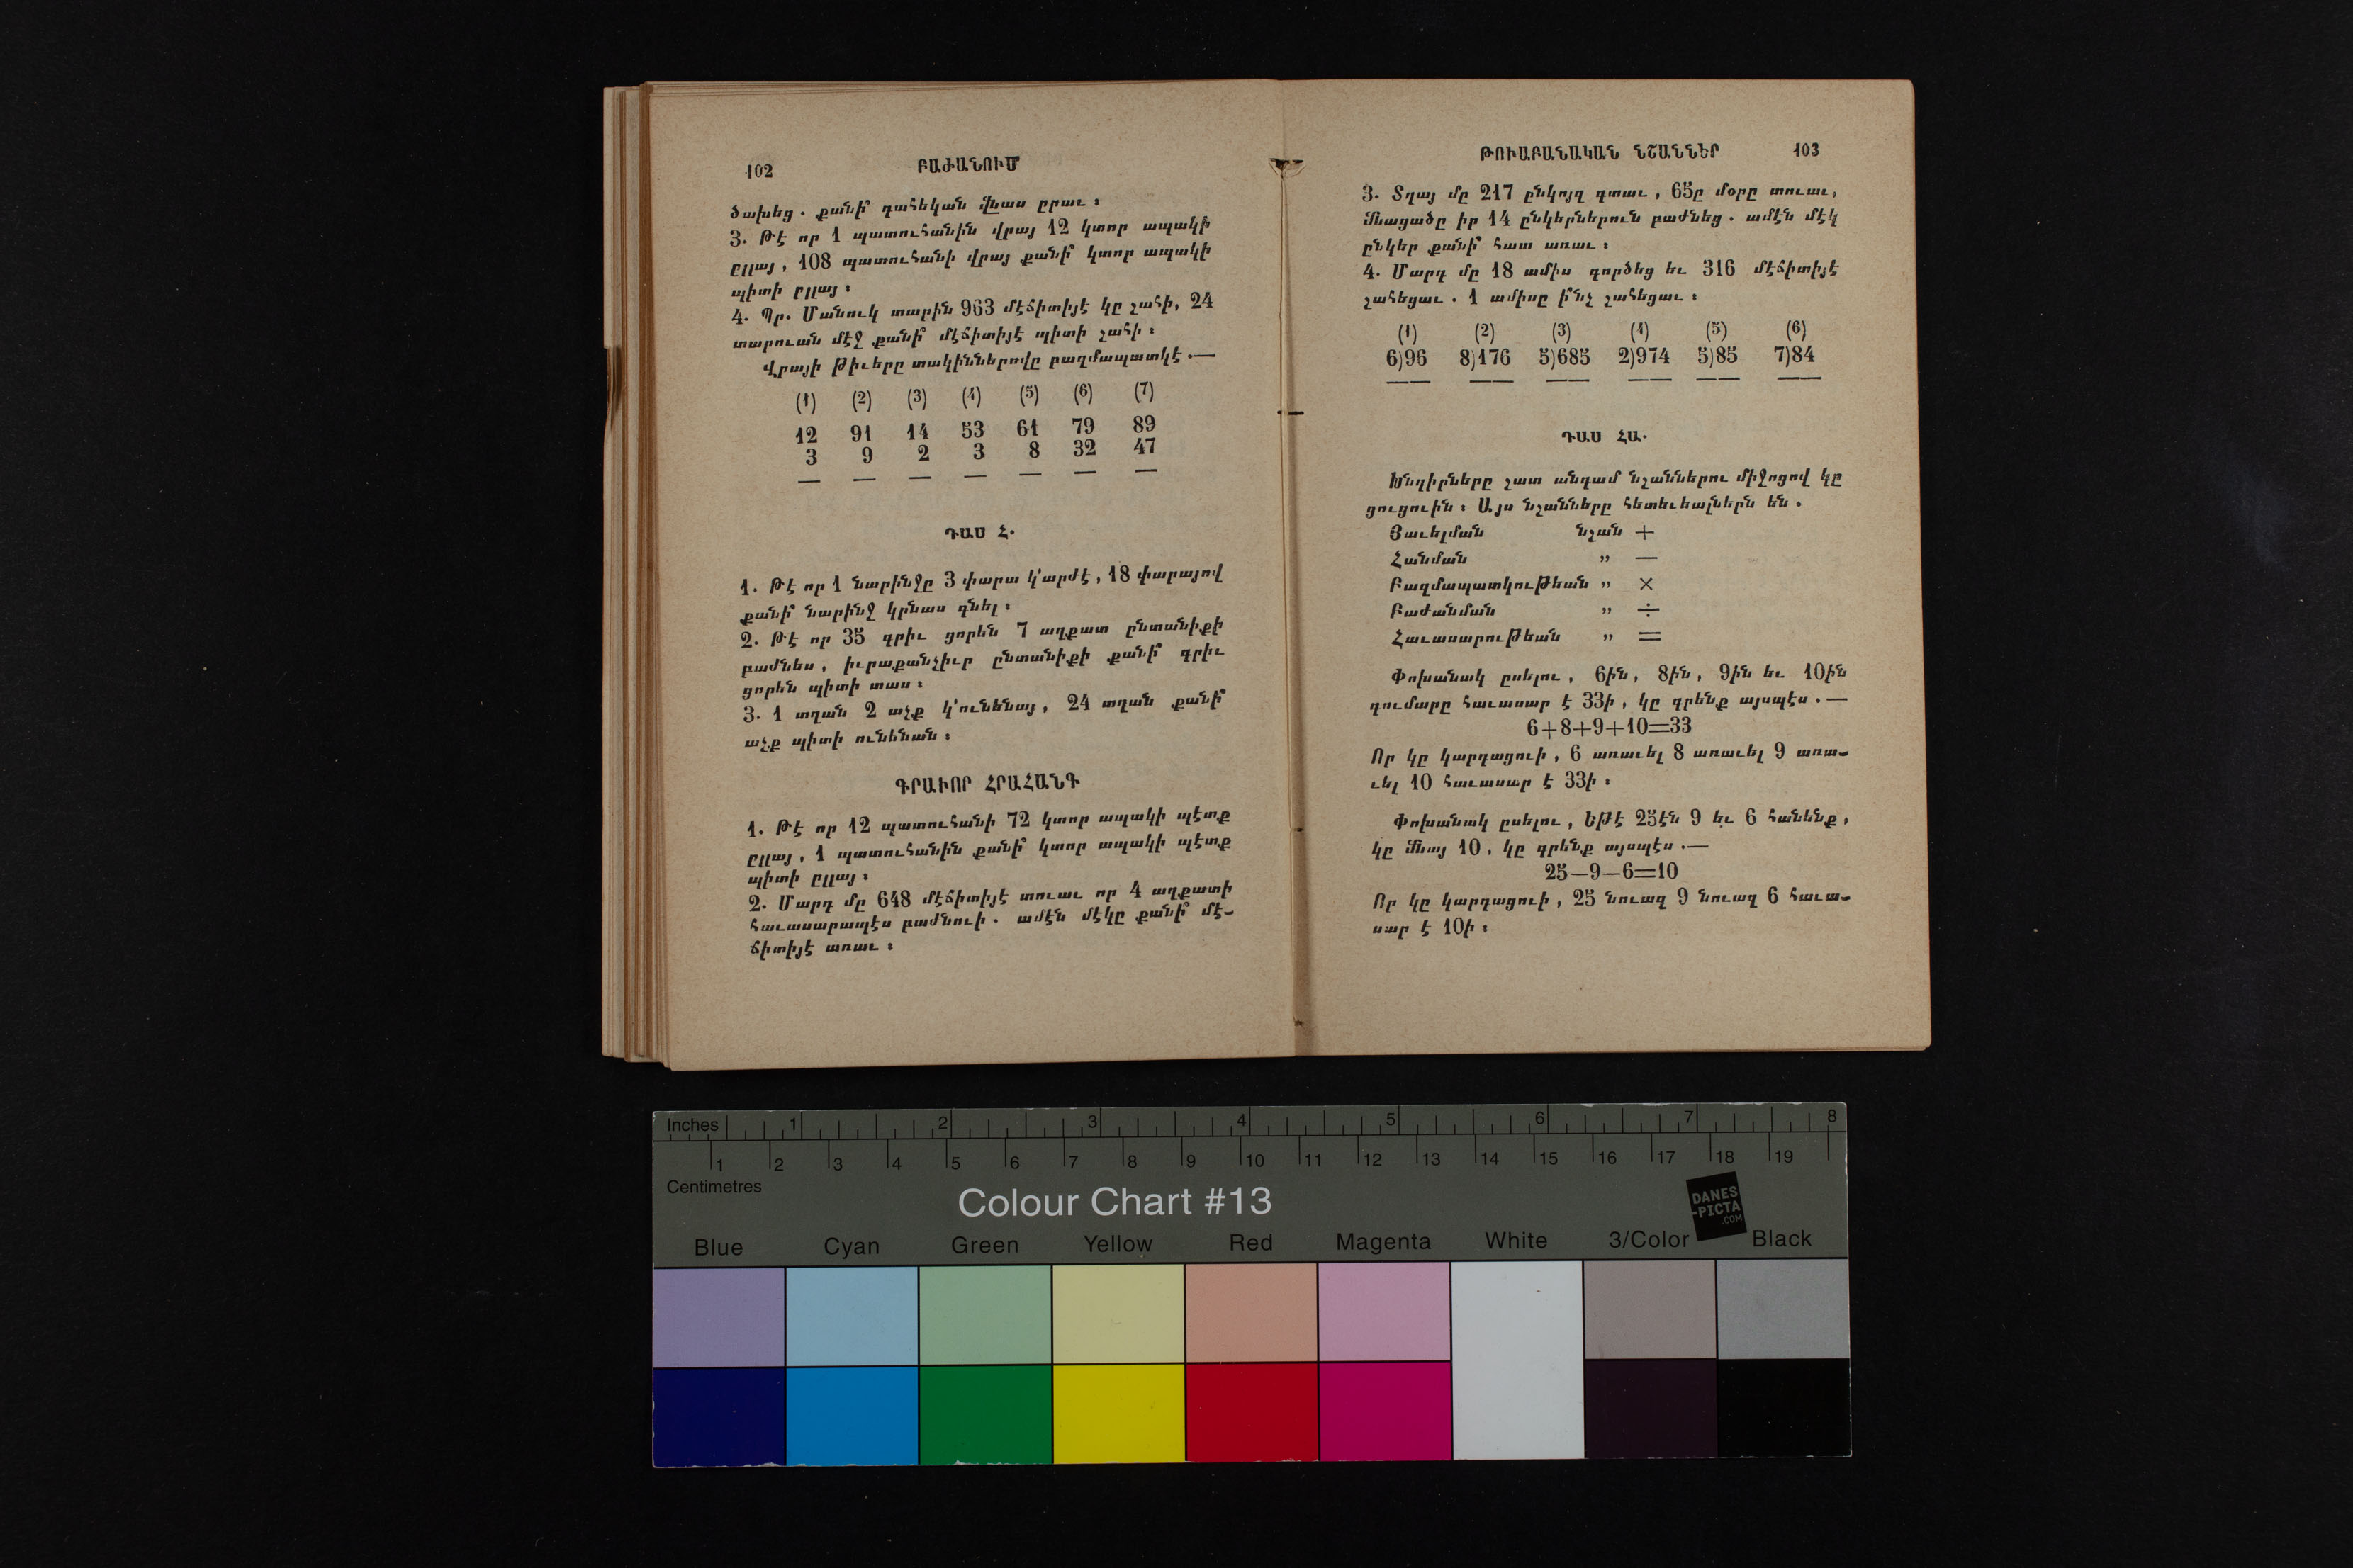 102 ԲԱԺԱՆՈՒՄ
ծախեց . քանի՞ դահեկան վնաս ըրաւ ։
3. Թէ որ 1 պատուհանին վրայ 12 կտոր ապակի
ըլլայ , 108 պատուհանի վրայ քանի՞ կտոր ապակի
պիտի ըլլայ ։
4. Պր. Մանուկ տարին 963 մէճիտիյէ կը շահի, 24
տարուան մէջ քանի՞ մէճիտիյէ պիտի շահի ։
Վրայի թիւերը տակիններովը բազմապատկէ .—
(1) (2) (3) (4) (5) (6) (7)
12 91 14 53 61 79 89
3 9 2 3 8 32 47
— — — — — — —
ԴԱՍ Հ.
1. Թէ որ 1 նարինջը 3 փարա կ՚արժէ , 18 փարայով
քանի՞ նարինջ կրնաս գնել ։
2. Թէ որ 35 գրիւ ցորեն 7 աղքատ ընտանիքի
բաժնես , իւրաքանչիւր ընտանիքի քանի՞ գրիւ
ցորեն պիտի տաս ։
3. 1 տղան 2 աչք կ՚ունենայ , 24 տղան քանի՞
աչք պիտի ունենան ։
ԳՐԱՒՈՐ ՀՐԱՀԱՆԳ
1. Թէ որ 12 պատուհանի 72 կտոր ապակի պէտք
ըլլայ , 1 պատուհանին քանի՞ կտոր ապակի պէտք
պիտի ըլլայ ։
2. Մարդ մը 648 մէճիտիյէ տուաւ որ 4 աղքատի
հաւասարապէս բաժնուի . ամէն մէկը քանի՞ մէ-
ճիտիյէ առաւ ։
ԹՈՒԱԲԱՆԱԿԱՆ ՆՇԱՆՆԵՐ 103
3. Տղայ մը 217 ընկոյզ գտաւ , 65ը մօրը տուաւ ,
մնացածը իր 14 ընկերներուն բաժնեց . ամէն մէկ
ընկեր քանի՞ հատ առաւ ։
4. Մարդ մը 18 ամիս գործեց եւ 316 մէճիտիյէ
շահեցաւ . 1 ամիսը ի՞նչ շահեցաւ ։
(1) (2) (3) (4) (5) (6)
6)96 8)176 5)685 2)974 5)85 7)84
—— —— —— —— —— ——
ԴԱՍ ՀԱ.
Խնդիրները շատ անգամ նշաններու միջոցով կը
ցուցուին ։ Այս նշանները հետեւեալներն են .
Յաւելման նշան +
Հանման ,, —
Բազմապատկութեան ,, ×
Բաժանման ,, ÷
Հաւասարութեան ,, =
Փոխանակ ըսելու , 6ին , 8ին , 9ին եւ 10ին
գումարը հաւասար է 33ի , կը գրենք այսպէս .—
6+8+9+10=33
Որ կը կարդացուի , 6 առաւել 8 առաւել 9 առա-
ւել 10 հաւասար է 33ի ։
Փոխանակ ըսելու , եթէ 25էն 9 եւ 6 հանենք ,
կը մնայ 10 , կը գրենք այսպէս .—
25—9—6=10
Որ կը կարդացուի , 25 նուազ 9 նուազ 6 հաւա-
սար է 10ի ։
Inches 1 2 3 4 5 6 7 8
1 2 3 4 5 6 7 8 9 10 11 12 13 14 15 16 17 18 19
Centimetres
Colour Chart #13
DANES
-PICTA
.COM
Blue Cyan Green Yellow Red Magenta White 3/Color Black